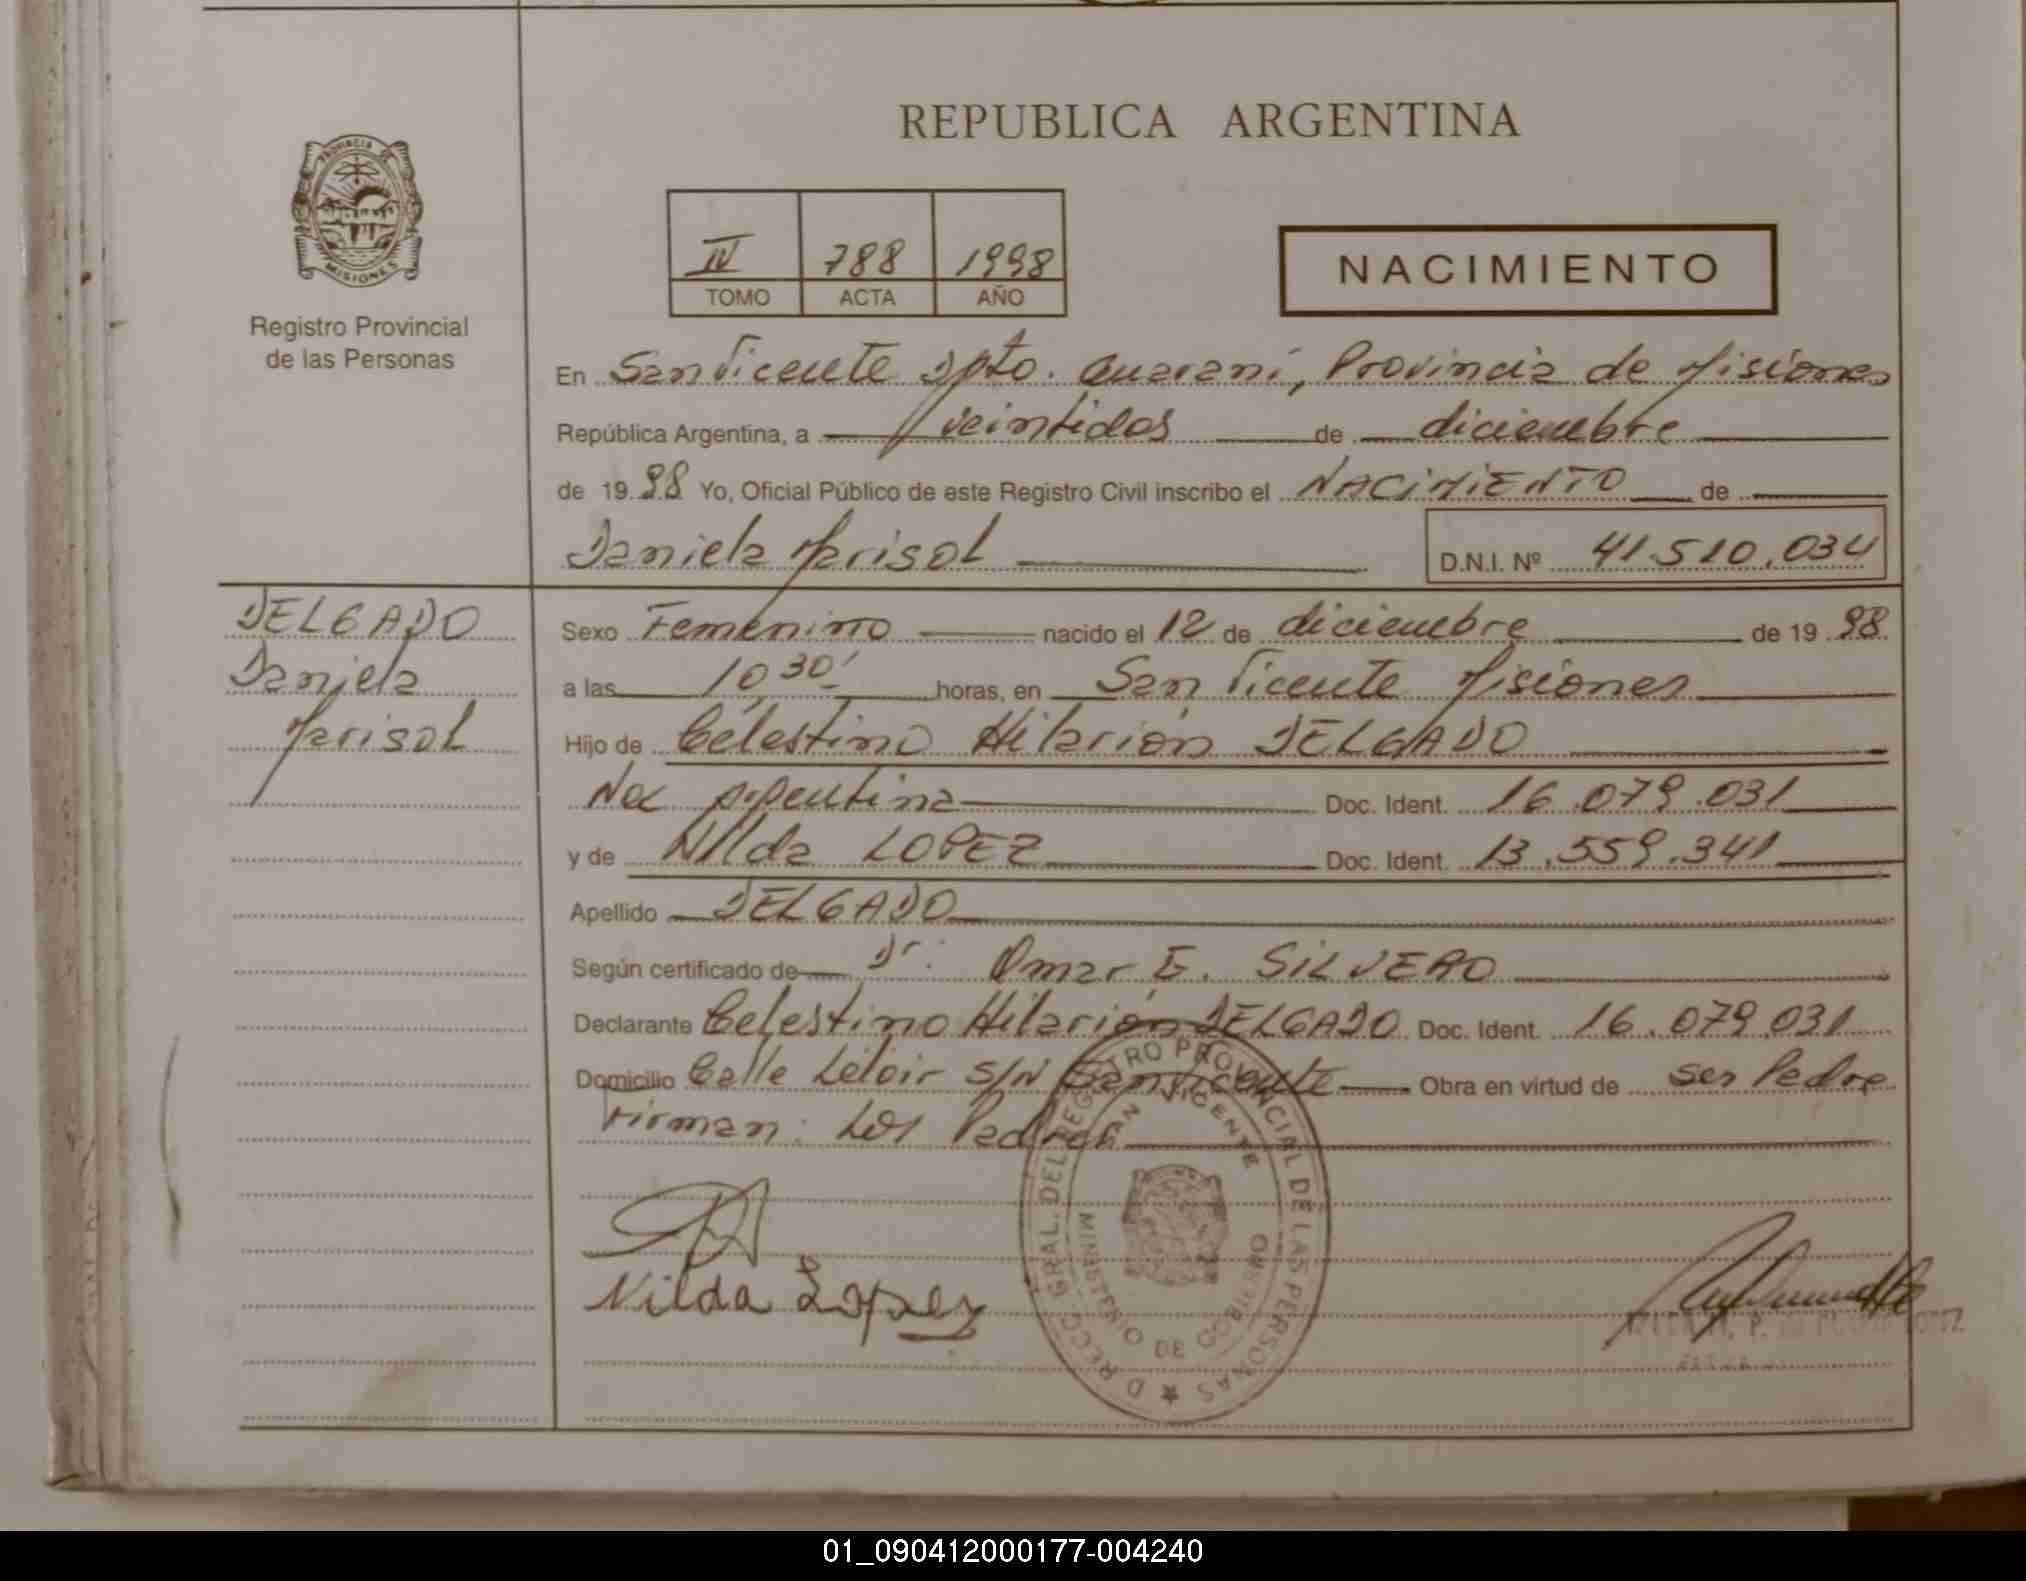 REPUBLICA ARGENTINA
PROVINCIA DE MISIONES
Registro Provincial
de las Personas
IV 788 1998
TOMO ACTA AÑO
NACIMIENTO
En San Vicente Dpto. Guaraní, Provincia de Misiones
República Argentina, a veintidos de diciembre
de 19 98 Yo, Oficial Público de este Registro Civil inscribo el NACIMIENTO de
Daniela Marisol D.N.I. Nº 41.510.034
DELGADO
Daniela
Marisol
Sexo Femenino nacido el 12 de diciembre de 19 98.
a las 10,30' horas, en San Vicente Misiones
Hijo de Celestino Hilarión DELGADO
Nac Argentina Doc. Ident. 16.079.031
y de Nilda LOPEZ Doc. Ident. 13.559.341
Apellido DELGADO
Según certificado de Dr. Omar E. SILVERO
Declarante Celestino Hilarión DELGADO Doc. Ident. 16.079.031
Domicilio Calle Leloir S/N San Vicente Obra en virtud de ser Padre
Firman: Los Padres
Nilda Lopez
DIRECC. GRAL. DEL REGISTRO PROVINCIAL DE LAS PERSONAS
SAN VICENTE
MINISTERIO DE GOBIERNO
01_090412000177-004240